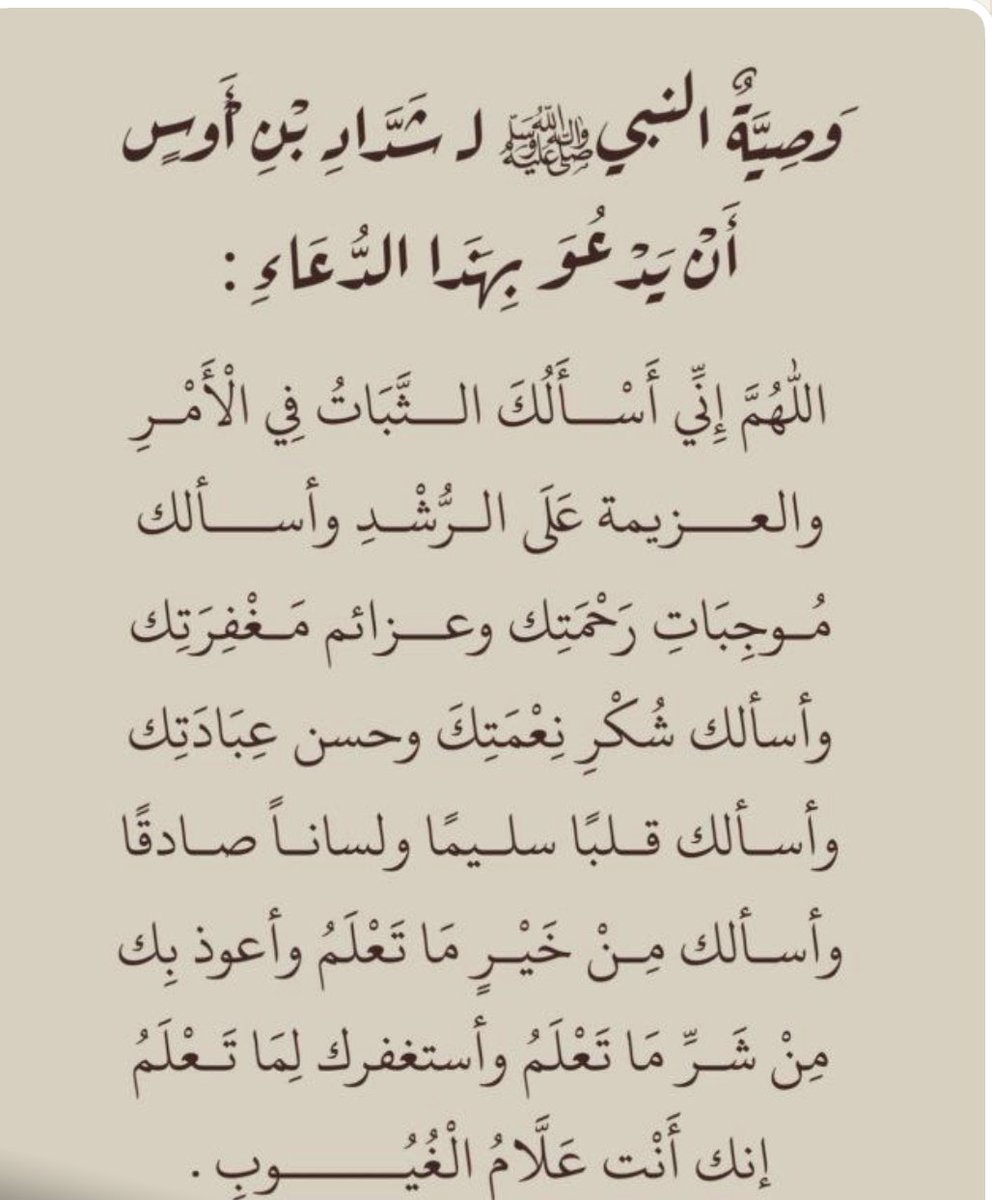 وَصِيَّةُ النبي ﷺ لـ شَدَّادِ بْنِ أَوسٍ
أَنْ يَدْعُوَ بِهَذَا الدُّعَاءِ :
اللَّهُمَّ إِنِّي أَسْــأَلُكَ الــثَّبَاتُ فِي الْأَمْـرِ
والعــزيمة عَلَى الـرُّشْـدِ وأســألك
مُـوجِبَاتِ رَحْمَتِك وعــزائم مَـغْفِرَتِك
وأسألك شُكْرِ نِعْمَتِكَ وحسن عِبَادَتِك
وأسـألك قـلبًا سلـيمًا ولسانـاً صـادقًا
وأسـألك مِـنْ خَيْـرٍ مَا تَعْلَمُ وأعوذ بِك
مِنْ شَـرِّ مَا تَعْلَمُ وأستغفرك لِمَا تَـعْلَمُ
إنك أَنْت عَلَّامُ الْغُيُــــوبِ .